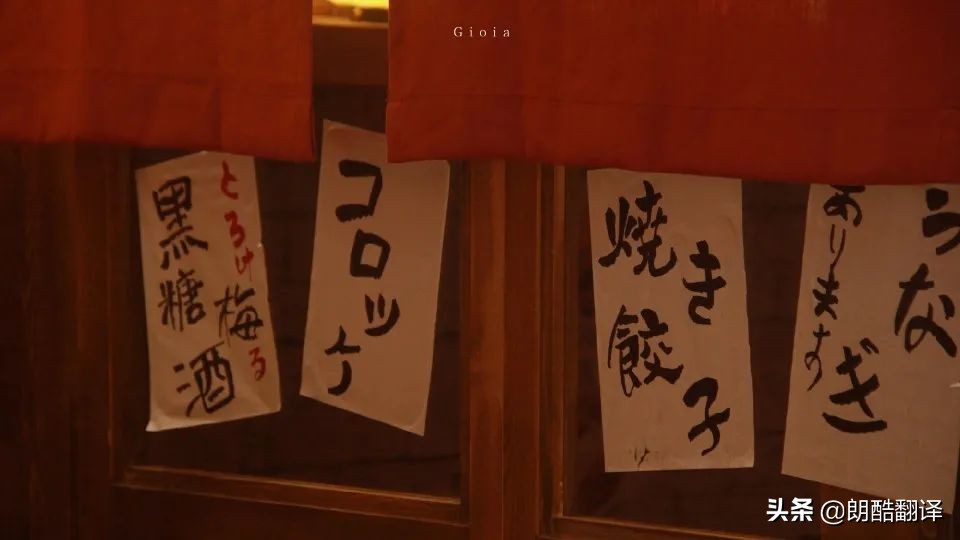 Gioia
とろけ梅る
黒糖酒
コロッケ
焼き餃子
うなぎ
あります
头条 @朗酷翻译